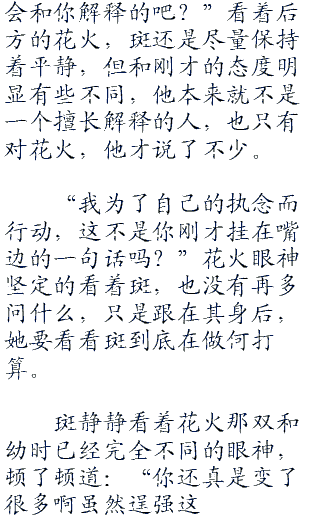 会和你解释的吧？”看着后
方的花火，斑还是尽量保持
着平静，但和刚才的态度明
显有些不同，他本来就不是
一个擅长解释的人，也只有
对花火，他才说了不少。
“我为了自己的执念而
行动，这不是你刚才挂在嘴
边的一句话吗？”花火眼神
坚定的看着斑，也没有再多
问什么，只是跟在其身后，
她要看看斑到底在做何打
算。
斑静静看着花火那双和
幼时已经完全不同的眼神，
顿了顿道：“你还真是变了
很多啊虽然逞强这